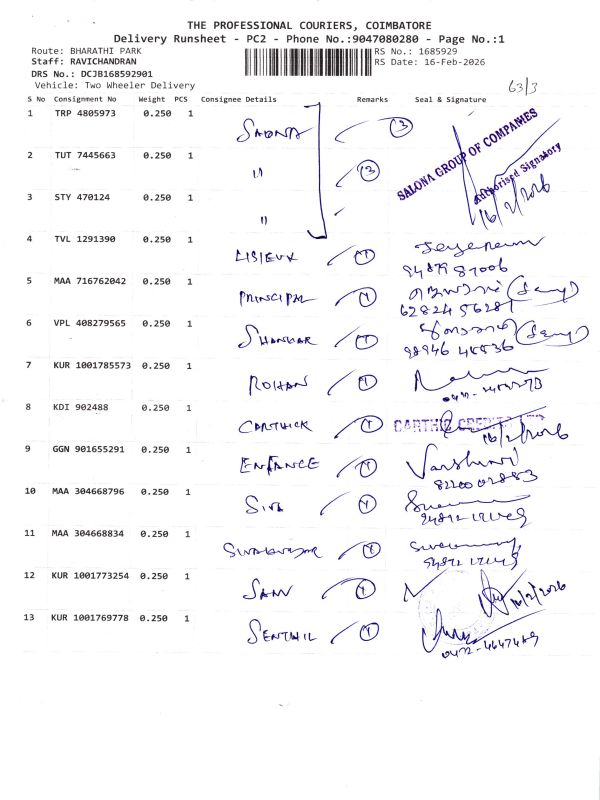 THE PROFESSIONAL COURIERS, COIMBATORE
Delivery Runsheet - PC2 - Phone No.:9047080280 - Page No.:1
Route: BHARATHI PARK RS No.: 1685929
Staff: RAVICHANDRAN RS Date: 16-Feb-2026
DRS No.: DCJB168592901
Vehicle: Two Wheeler Delivery 63/3
S No Consignment No Weight PCS Consignee Details Remarks Seal & Signature
1 TRP 4805973 0.250 1 SALONA 3
SALONA GROUP OF COMPANIES
Authorised Signatory
16/2/2026
2 TUT 7445663 0.250 1 " 3
3 STY 470124 0.250 1 "
4 TVL 1291390 0.250 1 LISIEUX 1
94879 87006
5 MAA 716762042 0.250 1 PRINCIPAL 1
62824 56281
6 VPL 408279565 0.250 1 SHANKAR 1
98946 48536
7 KUR 1001785573 0.250 1 ROHAN 1
8 KDI 902488 0.250 1 CARTHICK 1
CARTHIC CREDITS
16/2/2026
9 GGN 901655291 0.250 1 ENFANCE 1 Varshini
82200 02883
10 MAA 304668796 0.250 1 SIVA 1
11 MAA 304668834 0.250 1 1
12 KUR 1001773254 0.250 1 1
16/2/2026
13 KUR 1001769778 0.250 1 SENTHIL 1
0422-4647489